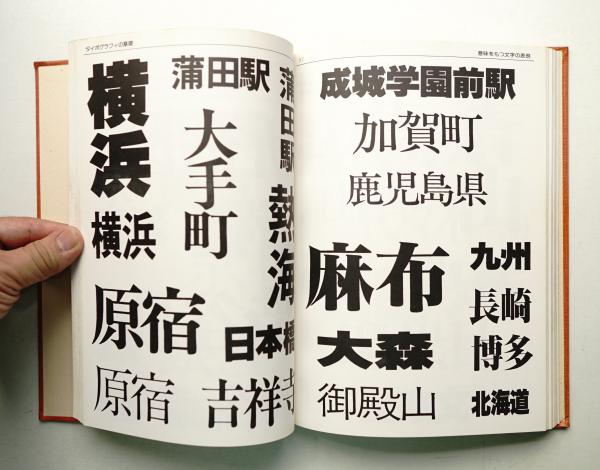 タイポグラフィの基礎
横浜
蒲田駅
蒲田駅
大手町
横浜
熱海
原宿
日本橋
原宿
吉祥寺
意味をもつ文字の表情
成城学園前駅
加賀町
鹿児島県
麻布
九州
長崎
大森
博多
御殿山
北海道